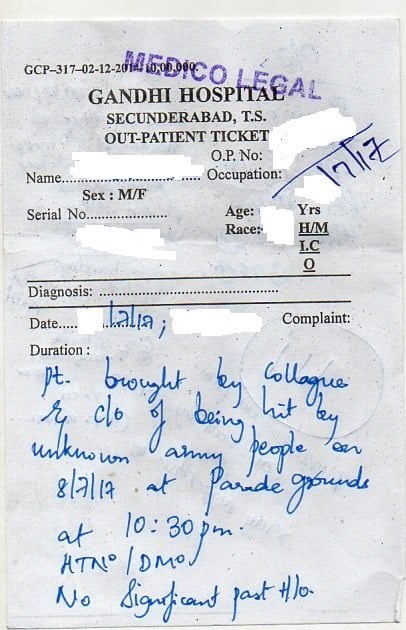 GCP–317–02-12-2014–10,00,000.
MEDICO LEGAL
GANDHI HOSPITAL
SECUNDERABAD, T.S.
OUT-PATIENT TICKET
O.P. No:
Name............ Occupation:
/7/17
Sex : M/F
Serial No.................... Age: Yrs
Race: H/M
I.C
O
Diagnosis: .............................................
Date..... /7/17; Complaint:
Duration :
pt. brought by Collague
c/o of being hit by
unknown army people on
8/7/17 at Parade grounds
at 10:30pm.
HTNo /DMo
No Significant past H/o.